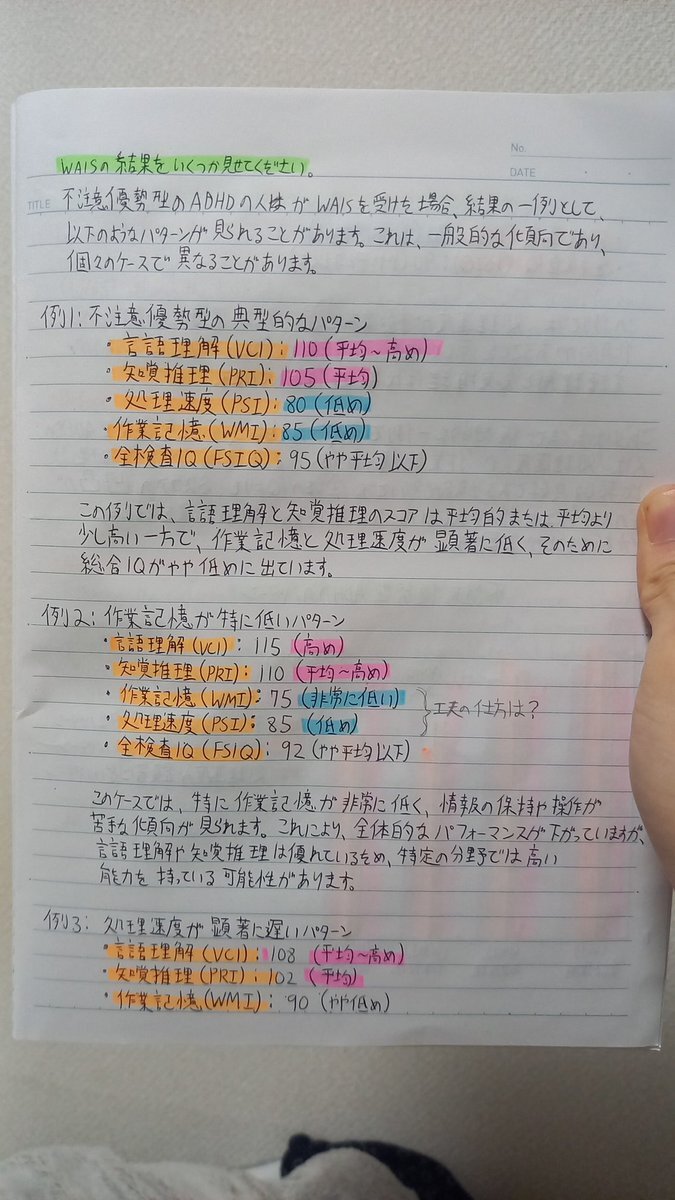 No.
DATE
WAISの結果をいくつか見せてください。
TITLE 不注意優勢型のADHDの人が WAISを受けた場合、結果の一例として、
以下のようなパターンが見られることがあります。これは、一般的な傾向であり、
個々のケースで異なることがあります。
例1:不注意優勢型の典型的なパターン
・言語理解(VCI):110(平均~高め)
・知覚推理(PRI):105(平均)
・処理速度(PSI):80(低め)
・作業記憶(WMI):85(低め)
・全検査IQ(FSIQ):95(やや平均以下)
この例では、言語理解と知覚推理のスコアは平均的または平均より
少し高い一方で、作業記憶と処理速度が顕著に低く、そのために
総合IQがやや低めに出ています。
例2:作業記憶が特に低いパターン
・言語理解(VCI):115(高め)
・知覚推理(PRI):110(平均~高め)
・作業記憶(WMI):75(非常に低い)
・処理速度(PSI):85(低め)
工夫の仕方は?
・全検査IQ(FSIQ):92(やや平均以下)
このケースでは、特に作業記憶が非常に低く、情報の保持や操作が
苦手な傾向が見られます。これにより、全体的なパフォーマンスが下がっていますが、
言語理解や知覚推理は優れているため、特定の分野では高い
能力を持っている可能性があります。
例3:処理速度が顕著に遅いパターン
・言語理解(VCI):108(平均~高め)
・知覚推理(PRI):102(平均)
・作業記憶(WMI):90(やや低め)